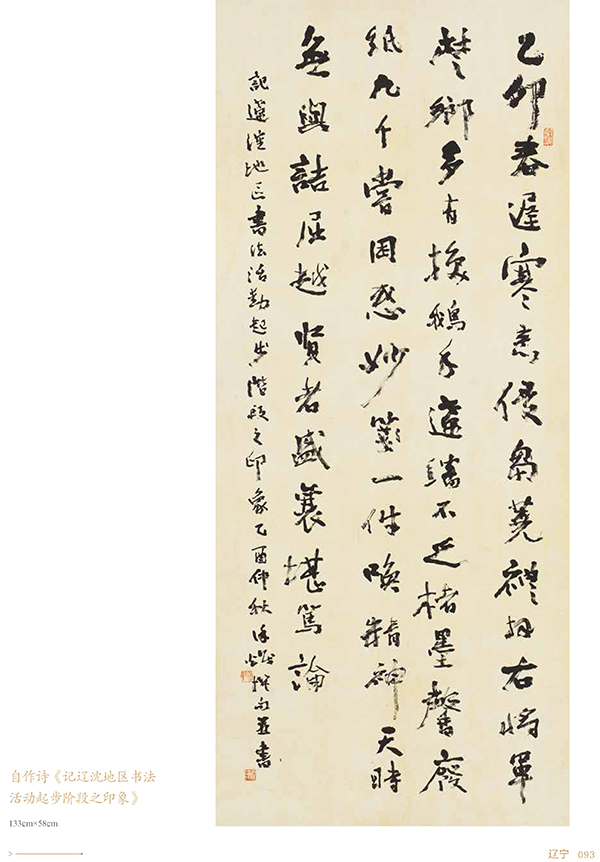 乙卯春遲寒意侵芻蕘禮拜右將軍
鄉多有換鵝手不乏楮墨馨廢
紙九千嘗困惑妙一件喚精神天時
無與詰屈越賢者盛衰堪篤論
記遼瀋地区書法活動起步階段之印象乙酉仲秋撰句並書
自作诗《记辽沈地区书法
活动起步阶段之印象》
133cm×58cm
辽宁 093